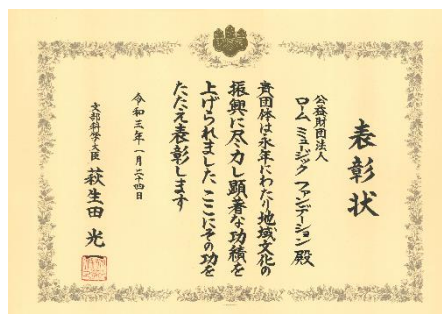 表彰状
公益財団法人
ローム ミュージック ファンデーション 殿
貴団体は永年にわたり地域文化の
振興に尽力し顕著な功績を
上げられました ここにその功を
たたえ表彰します
令和三年一月二十四日
文部科学大臣 萩生田 光一